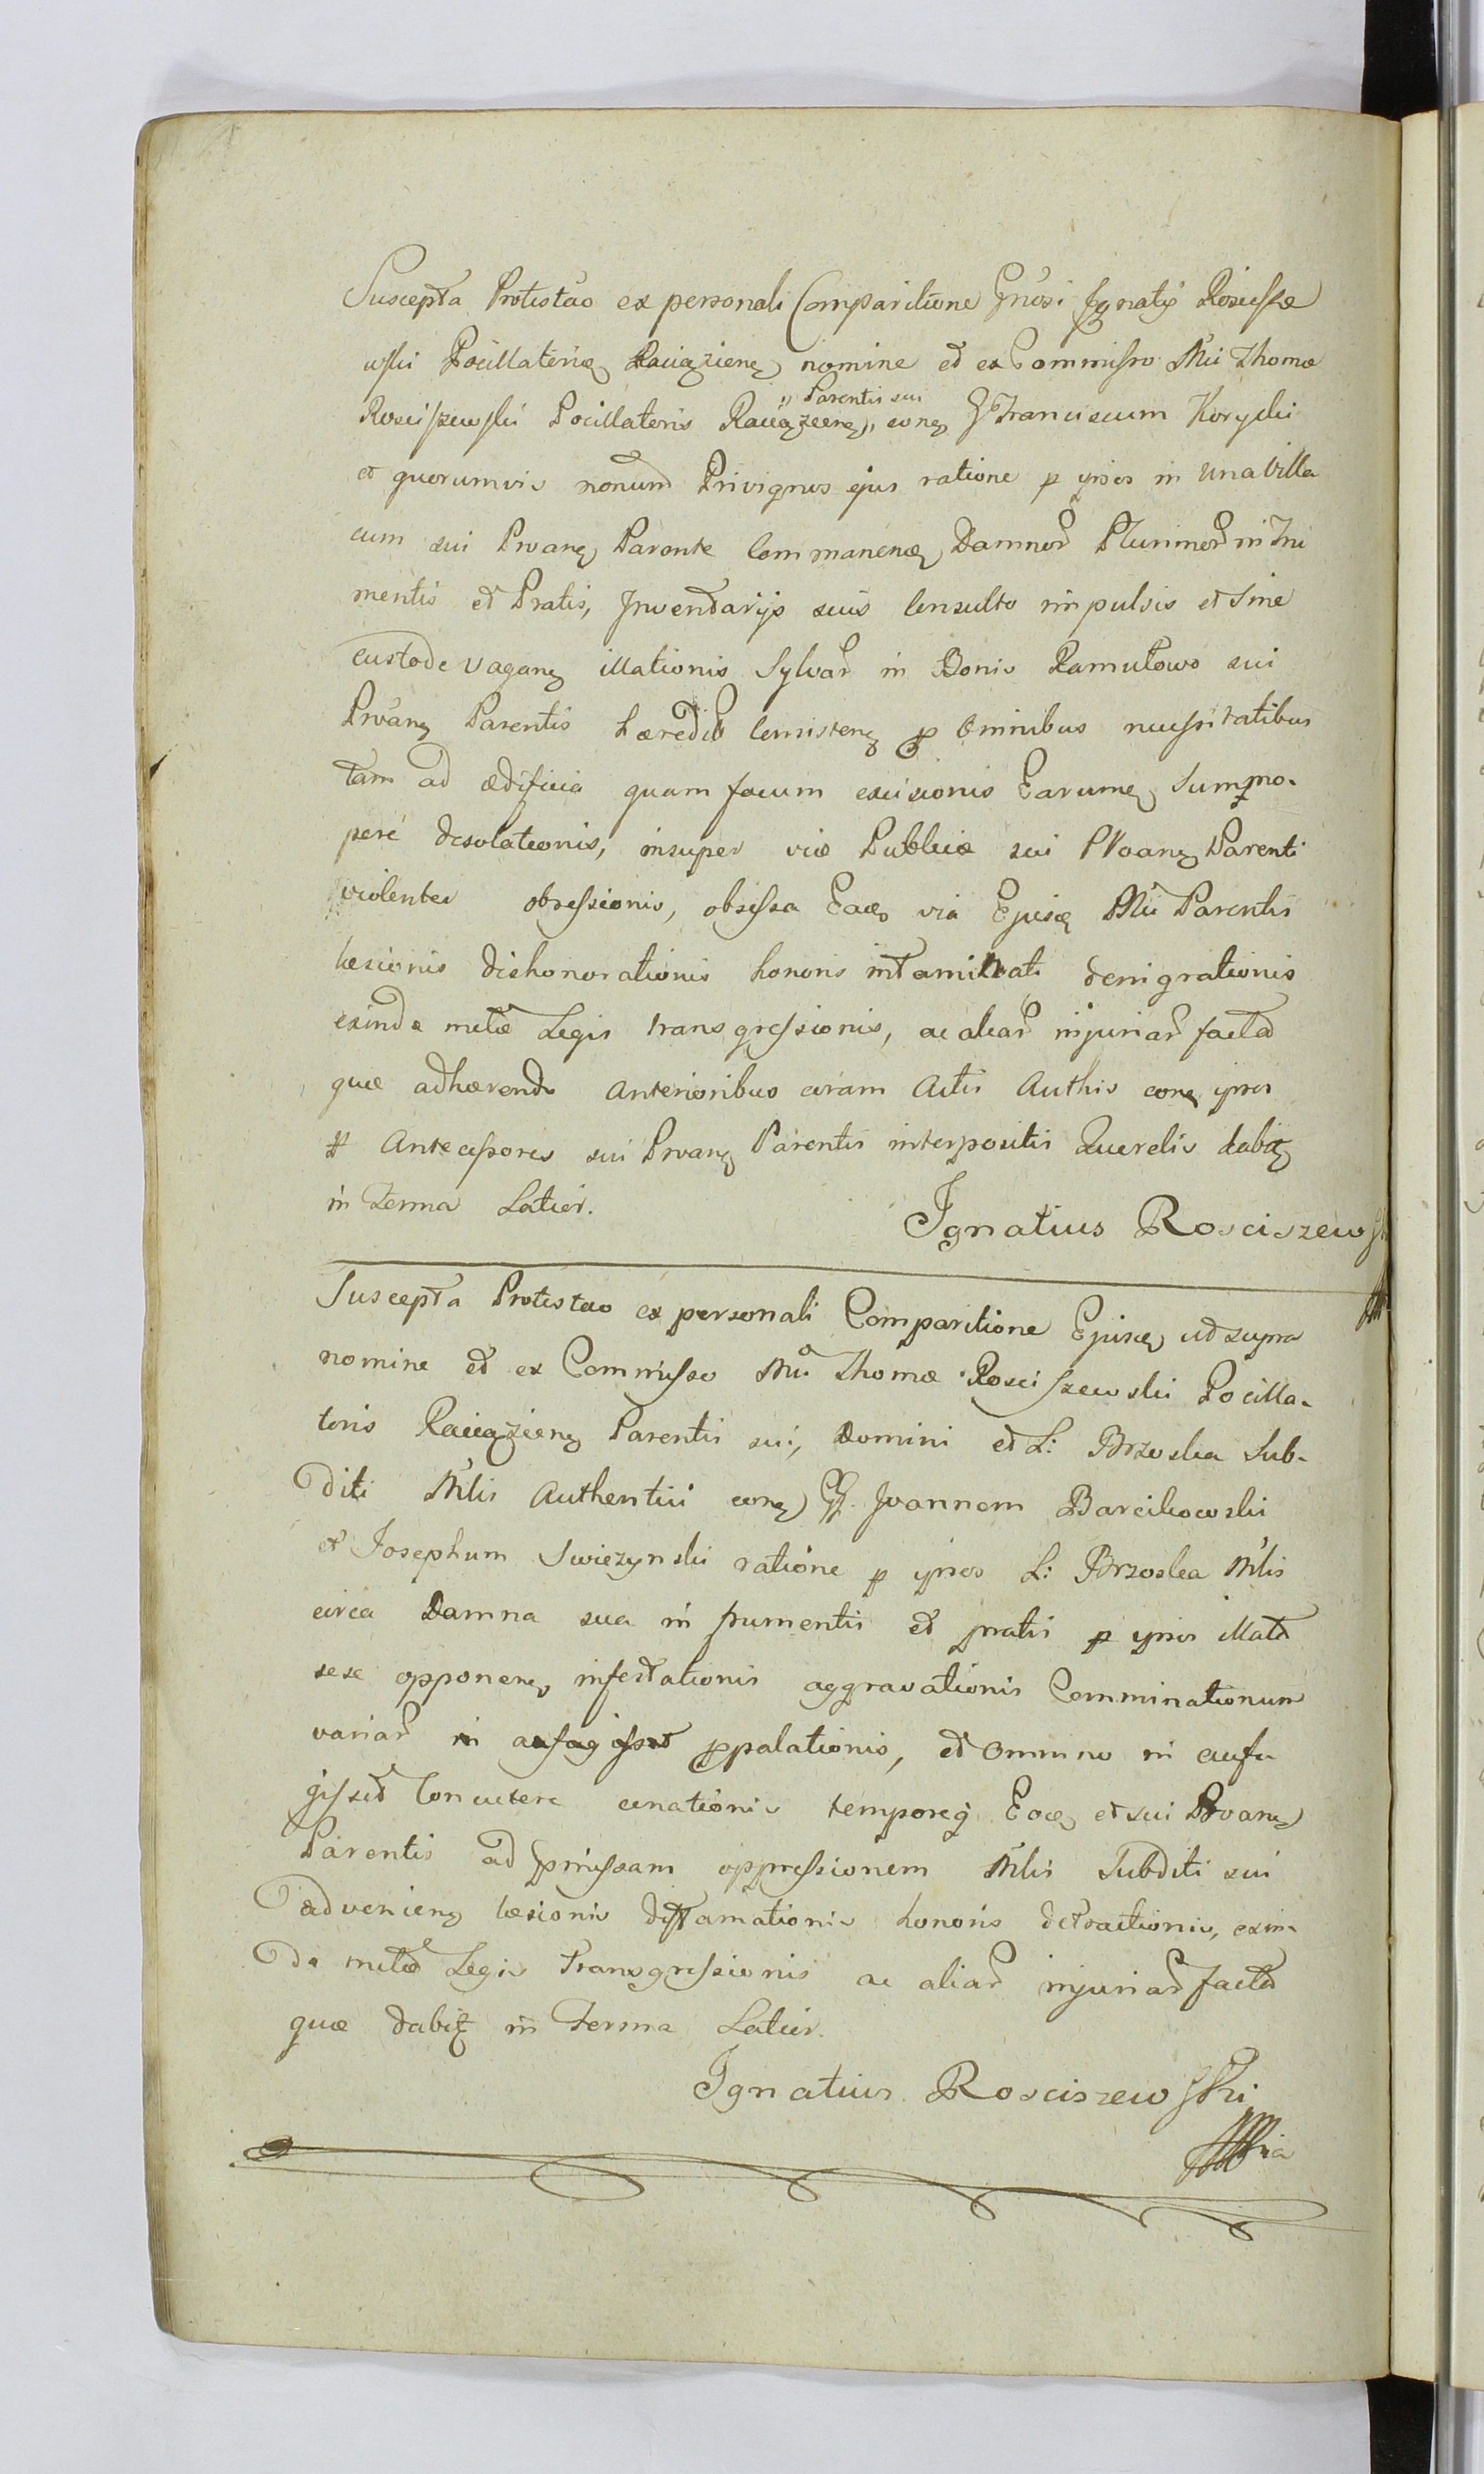 Suscepta Protestao ex personali Comparitione Gnosi Ignatij Roscisze
wski Pocillatoris Raciązien nomine et ex Commisso Mci Thomæ
" Parentis sui
Rosciszewski Pocillatoris Raciązien " con G Franciscum Korycki
et quorumvis nonum Privignos ejus ratione p ipsos in una Villa
cum sui Prvang Parente Commanen Damnor Plurimor in Fru
mentis et Pratis, Inventarijs suis Consulto impulsis et sine
custode vagang illationis Sylvar in Bonis Ramutowo sui
Prvang Parentis hæredit Consisteng p omnibus necessitatibus
tam ad ædificia quam focum excisionis Earumq Summo-
pere desolationis, insuper viæ Publicæ sui Prvang Parenti
violenter obsessionis, obsessa Eadq via Ejusq Mci Parentis
læsionis dishonorationis honoris intaminati denigrationis
exinde metæ Legis transgressionis, ac aliar injuriar factar
quæ adhærendo anterioribus coram Actis Authis con ipsos
Antecessores sui Prvang Parentis interpositis Querelis dabit
in Termo Latior.
Ignatius Rosciszewski
Suscepta Protestao ex personali Comparitione Ejusq ut supra
nomine et ex Commisso Mci Thomæ Rosciszewski Pocilla-
toris Raciązien Parentis sui, Domini et L: Brzoska Sub-
diti Nblis Authentici con GG Joannem Barcikowski
et Josephum Swiezynski ratione p ipsos L: Brzoska Nblis
circa Damna sua in frumentis et pratis p ipsos illat
sese opponeng infestationis aggravationis Comminationum
variar in ppalationis, et omnino in aufu
gisset Concutere conationis temporeq Eodq et sui Prvang
Parentis ad pmissam oppressionem Nblis Subditi sui
advenieng læsionis diffamationis honoris detractionis, exin-
de metæ Legis Transgressionis ac aliar injuriar factar
quæ dabit in Termo Latior.
Ignatius Rosciszewski